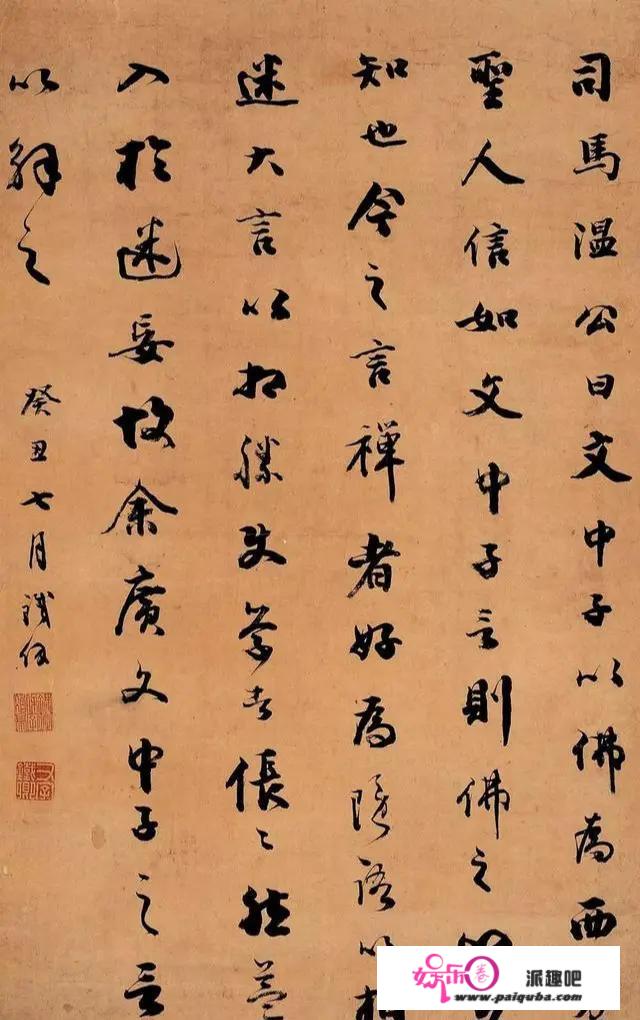 司馬温公曰文中子以佛為西
聖人信如文中子言則佛之
知也今之言禪者好為隱語以相
迷大言以相勝使學者倀〻然益
入於迷妄故余廣文中子之言
以解之
癸丑七月鐵保
娱乐圈 派趣吧
www.paiquba.com